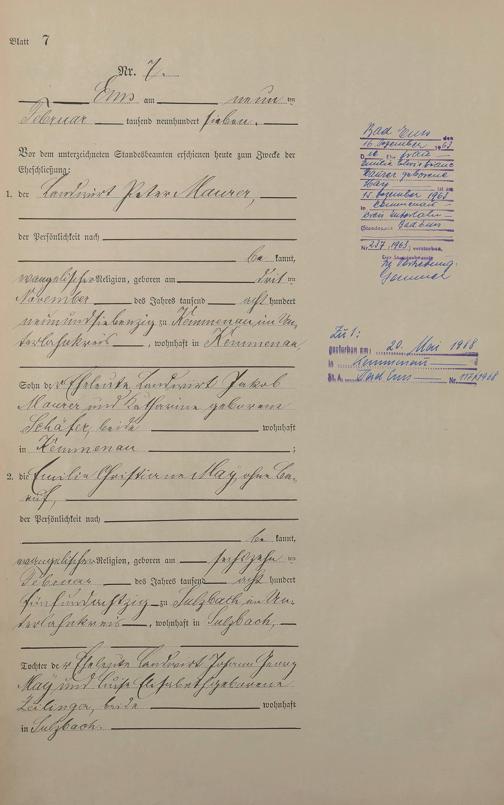 Blatt 7
Nr. 7.
Ems am neunten
Februar tausend neunhundert sieben.
Vor dem unterzeichneten Standesbeamten erschienen heute zum Zwecke der
Eheschließung:
1. der Landwirt Peter Maurer,
der Persönlichkeit nach
be kannt,
evangelischer Religion, geboren am dritten
November des Jahres tausend acht hundert
neunundsiebenzig zu Kemmenau im Un-
terlahnkreis, wohnhaft in Kemmenau
Sohn der Eheleute Landwirt Jakob
Maurer und Katharine geborene
Schäfer, beide wohnhaft
in Kemmenau ;
2. die Emilie Christiane May ohne Be-
ruf,
der Persönlichkeit nach
be kannt,
evangelischer Religion, geboren am sechszehnten
Februar des Jahres tausend acht hundert
fünfundachtzig zu Sulzbach im Un-
terlahnkreis, wohnhaft in Sulzbach,
Tochter der Eheleute Landwirt Johann Georg
May und Luise Elisabeth geborene
beide wohnhaft
in Sulzbach.
Bad Ems den
16. Dezember 1963
Die Ehefrau
Emilie Christiane
Maurer geborene
May ist am
15. Dezember 1963
in Kemmenau
Standesamt Bad Ems
Nr. 237/1963, verstorben.
Der Standesbeamte
Zu 1:
gestorben am: 20. Mai 1968
in Kemmenau
St. A. Bad Ems Nr.